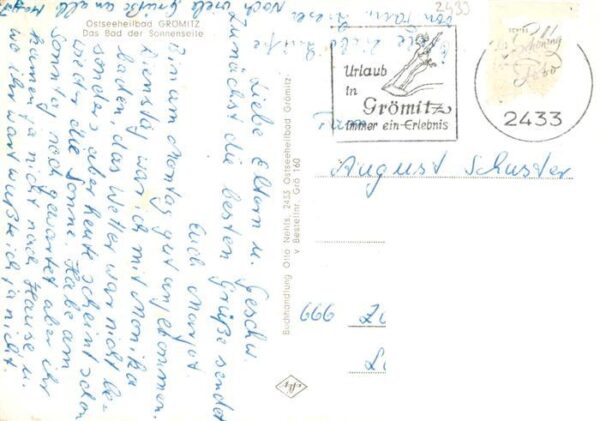 Ostseeheilbad GRÖMITZ
Das Bad der Sonnenseite
Liebe Eltern u. Geschw.
Zunächst die besten Grüße sendet
Euch Margot.
Bin am Montag gut angekommen.
Dienstag war ich mit Monika
baden das Wetter war nicht be-
sonders aber heute scheint schon
wieder die Sonne. Habe am
Sonntag noch gewartet aber ihr
kamen ja nicht nach Hause u.
wo ihr wart wußte ich ja nicht.
Noch viele Grüße an alle
von
Buchhandlung Otto Nehls, 2433 Ostseeheilbad Grömitz
v Bestellnr. Grö 160
2433
Urlaub
in
Grömitz
immer ein Erlebnis
2433
Fam.
August Schuster
666